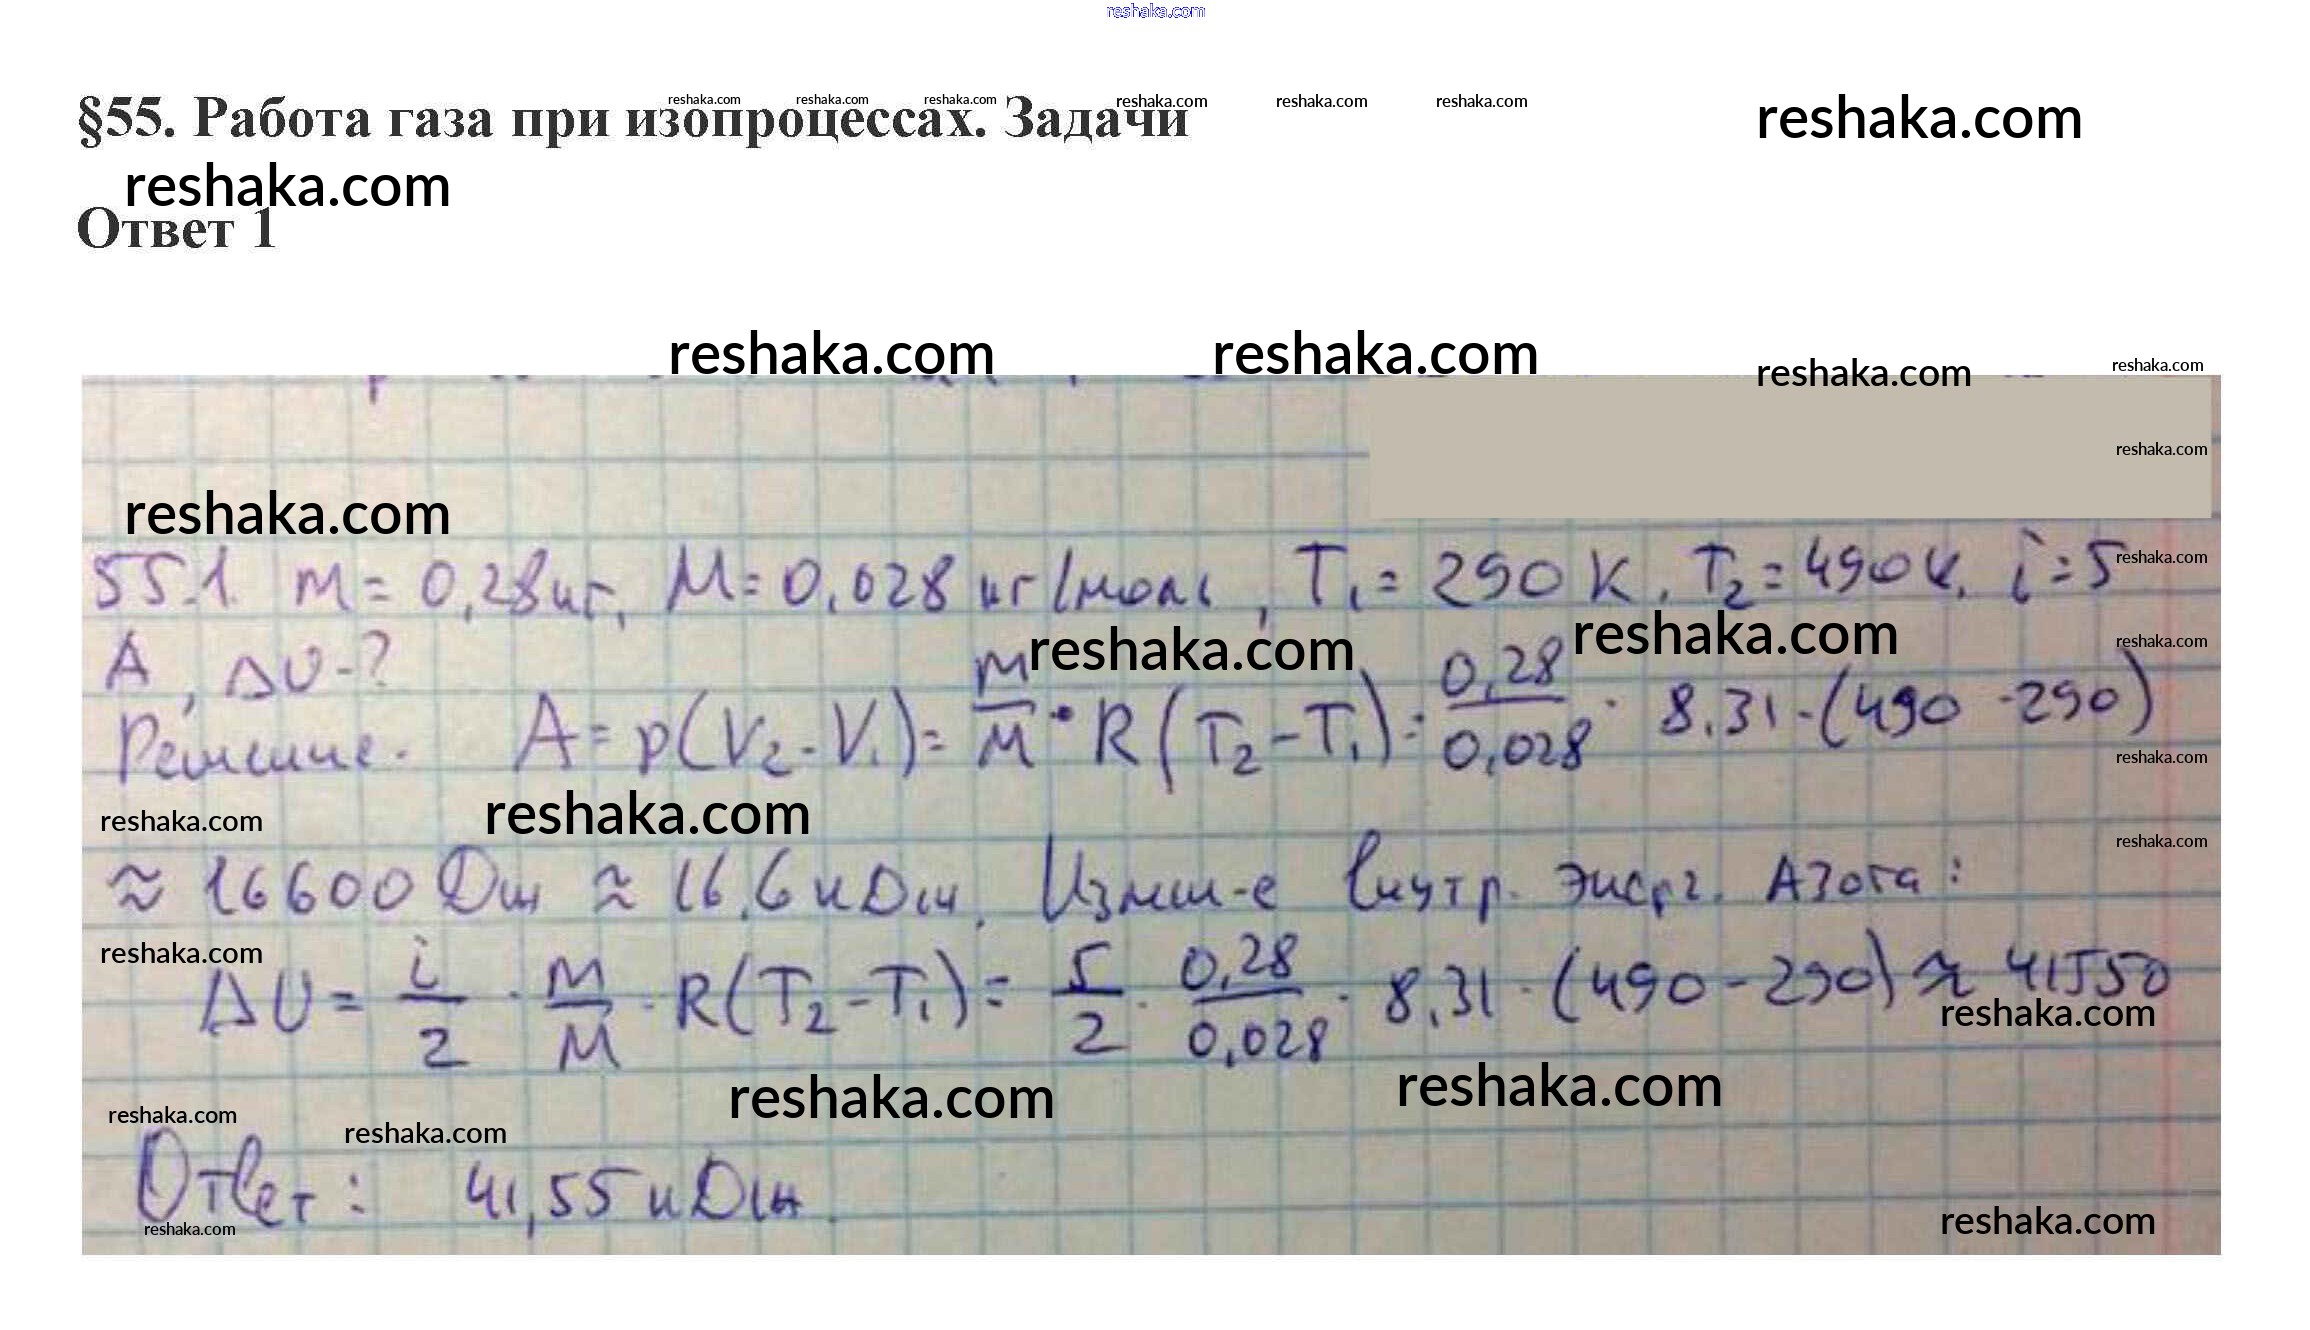 reshaka.com
reshaka.com reshaka.com reshaka.com reshaka.com reshaka.com reshaka.com
§55. Работа газа при изопроцессах. Задачи reshaka.com
reshaka.com
Ответ 1
reshaka.com reshaka.com reshaka.com reshaka.com
reshaka.com
reshaka.com
55.1. m = 0,28 кг, M = 0,028 кг/моль, T₁ = 290 K, T₂ = 490 K, i = 5 reshaka.com
reshaka.com reshaka.com reshaka.com
A, ΔU - ?
Решение. A = p(V₂ - V₁) = m/M · R(T₂ - T₁) = 0,28/0,028 · 8,31 · (490 - 290)
reshaka.com
reshaka.com reshaka.com reshaka.com
≈ 16600 Дж ≈ 16,6 кДж. Измен-е внутр. энерг. азота:
reshaka.com
ΔU = i/2 · m/M · R(T₂ - T₁) = 5/2 · 0,28/0,028 · 8,31 · (490 - 290) ≈ 41550
reshaka.com
reshaka.com reshaka.com
reshaka.com reshaka.com
Ответ: 41,55 кДж.
reshaka.com reshaka.com